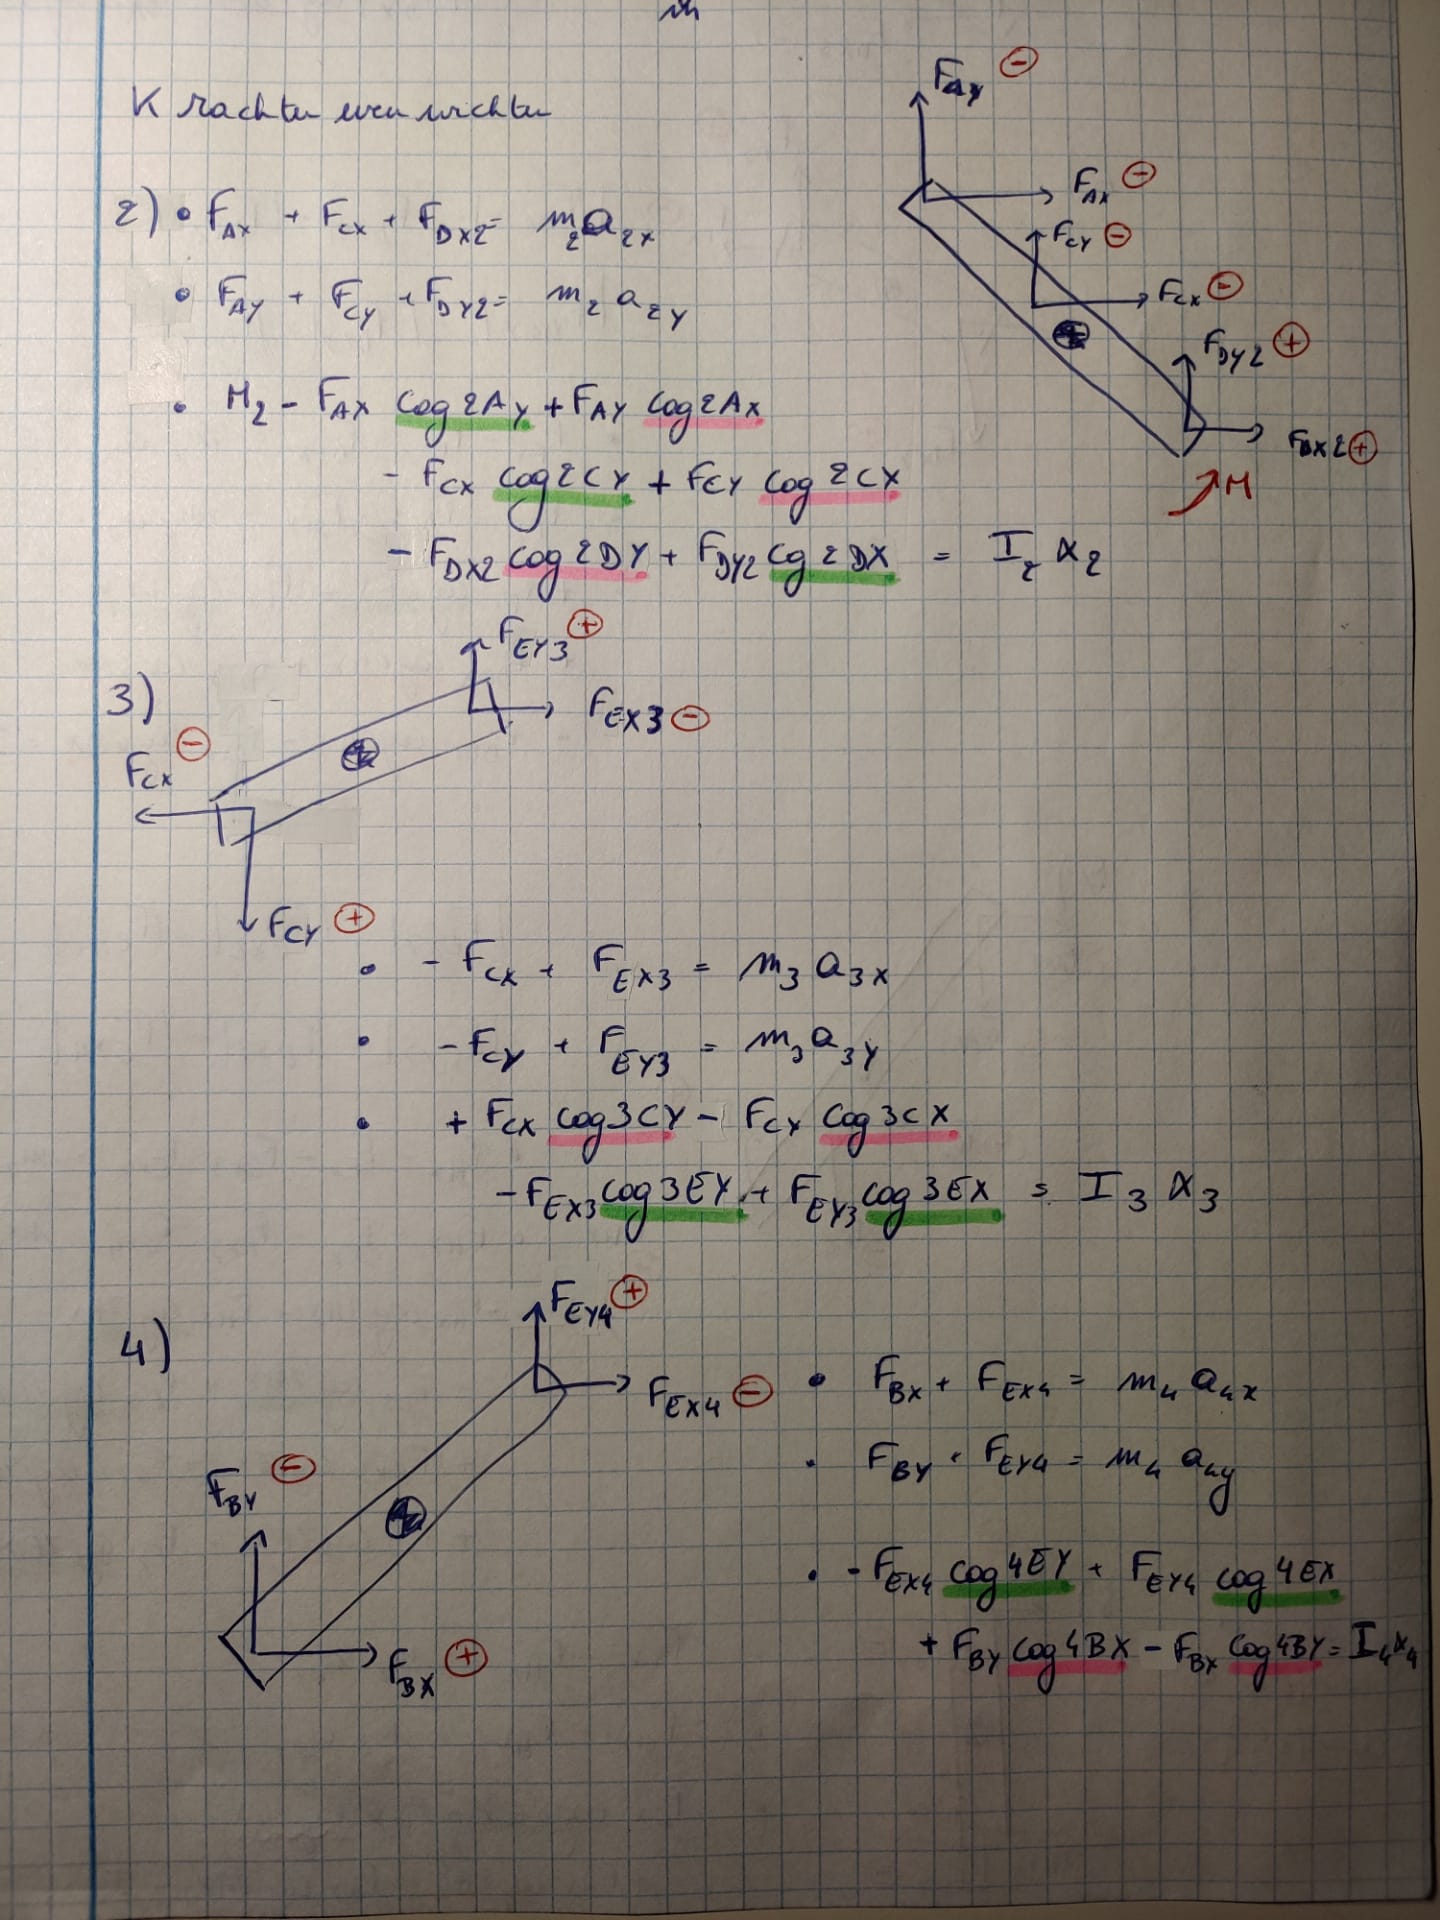 Krachten evenwichten
F_AY ⊖
F_AX ⊖
F_CY ⊖
F_CX ⊖
F_DY2 ⊕
F_DX2 ⊕
M
2) • F_AX + F_CX + F_DX2 = m_2 a_2X
• F_AY + F_CY + F_DY2 = m_2 a_2Y
• M_2 - F_AX cog2AY + F_AY cog2AX
- F_CX cog2CY + F_CY cog2CX
- F_DX2 cog2DY + F_DY2 cg2DX = I_2 α_2
3)
F_EY3 ⊕
F_EX3 ⊖
F_CX ⊖
F_CY ⊕
• - F_CX + F_EX3 = m_3 a_3X
• - F_CY + F_EY3 = m_3 a_3Y
• + F_CX cog3CY - F_CY cog3CX
- F_EX3 cog3EY + F_EY3 cog3EX = I_3 α_3
4)
F_EY4 ⊕
F_EX4 ⊖
F_BY ⊖
F_BX ⊕
• F_BX + F_EX4 = m_4 a_4X
• F_BY + F_EY4 = m_4 a_4y
• - F_EX4 cog4EY + F_EY4 cog4EX
+ F_BY cog4BX - F_BX cog4BY = I_4 α_4